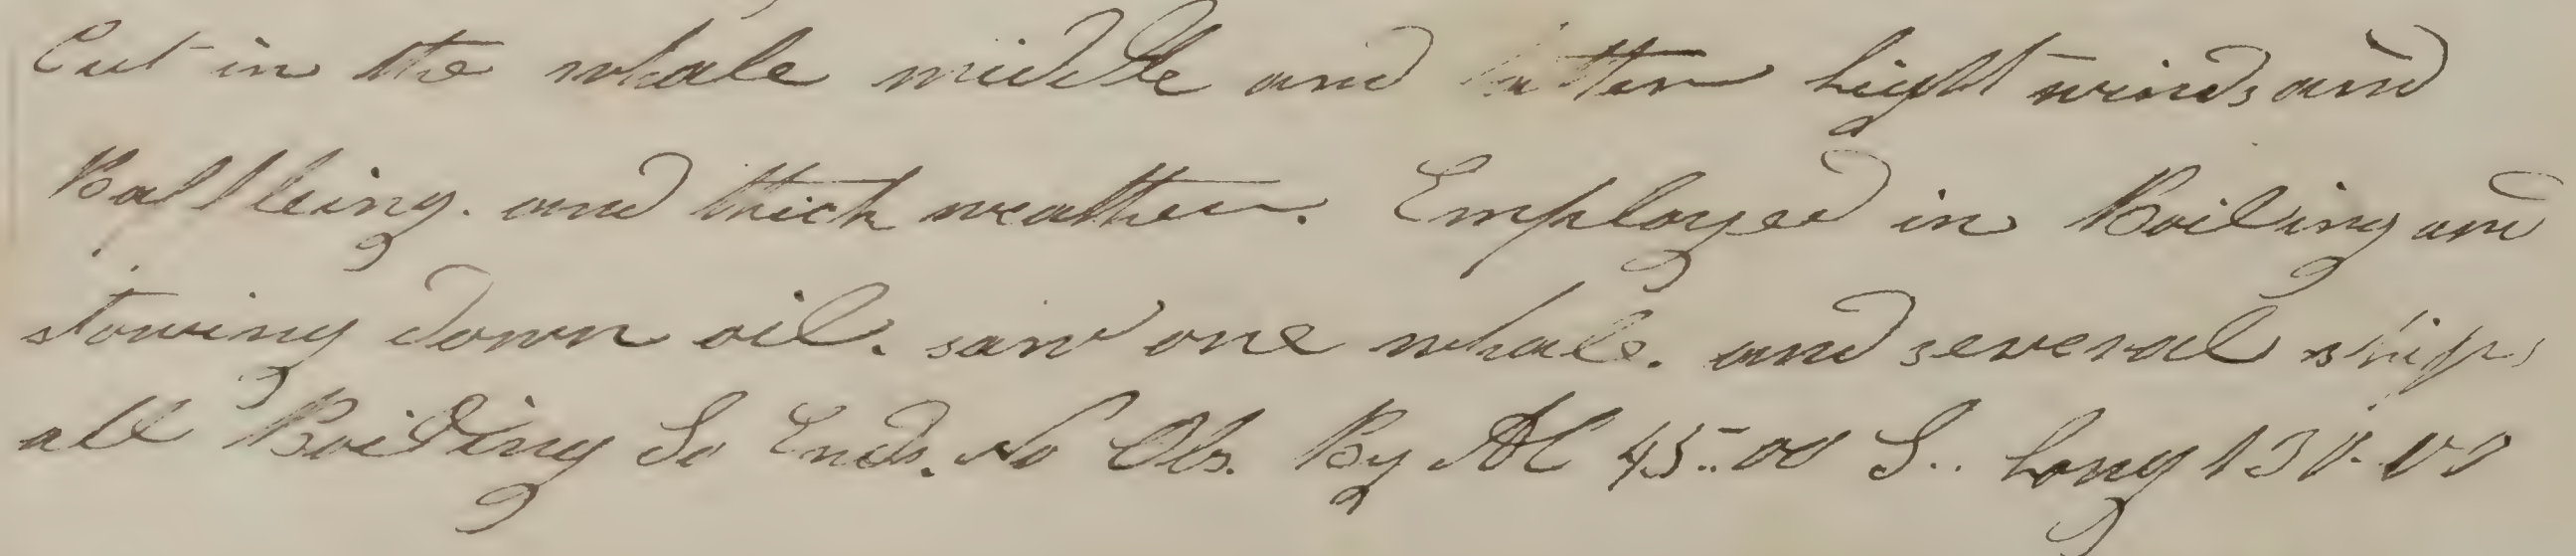 Cut in the whale middle and latter light winds and
Baffleing. and thick weather. Employed in Boiling and
stowing down oil. saw one whale. and several ships
all Boiling So Ends. No Obs. By Ac 45..00 S.. Long